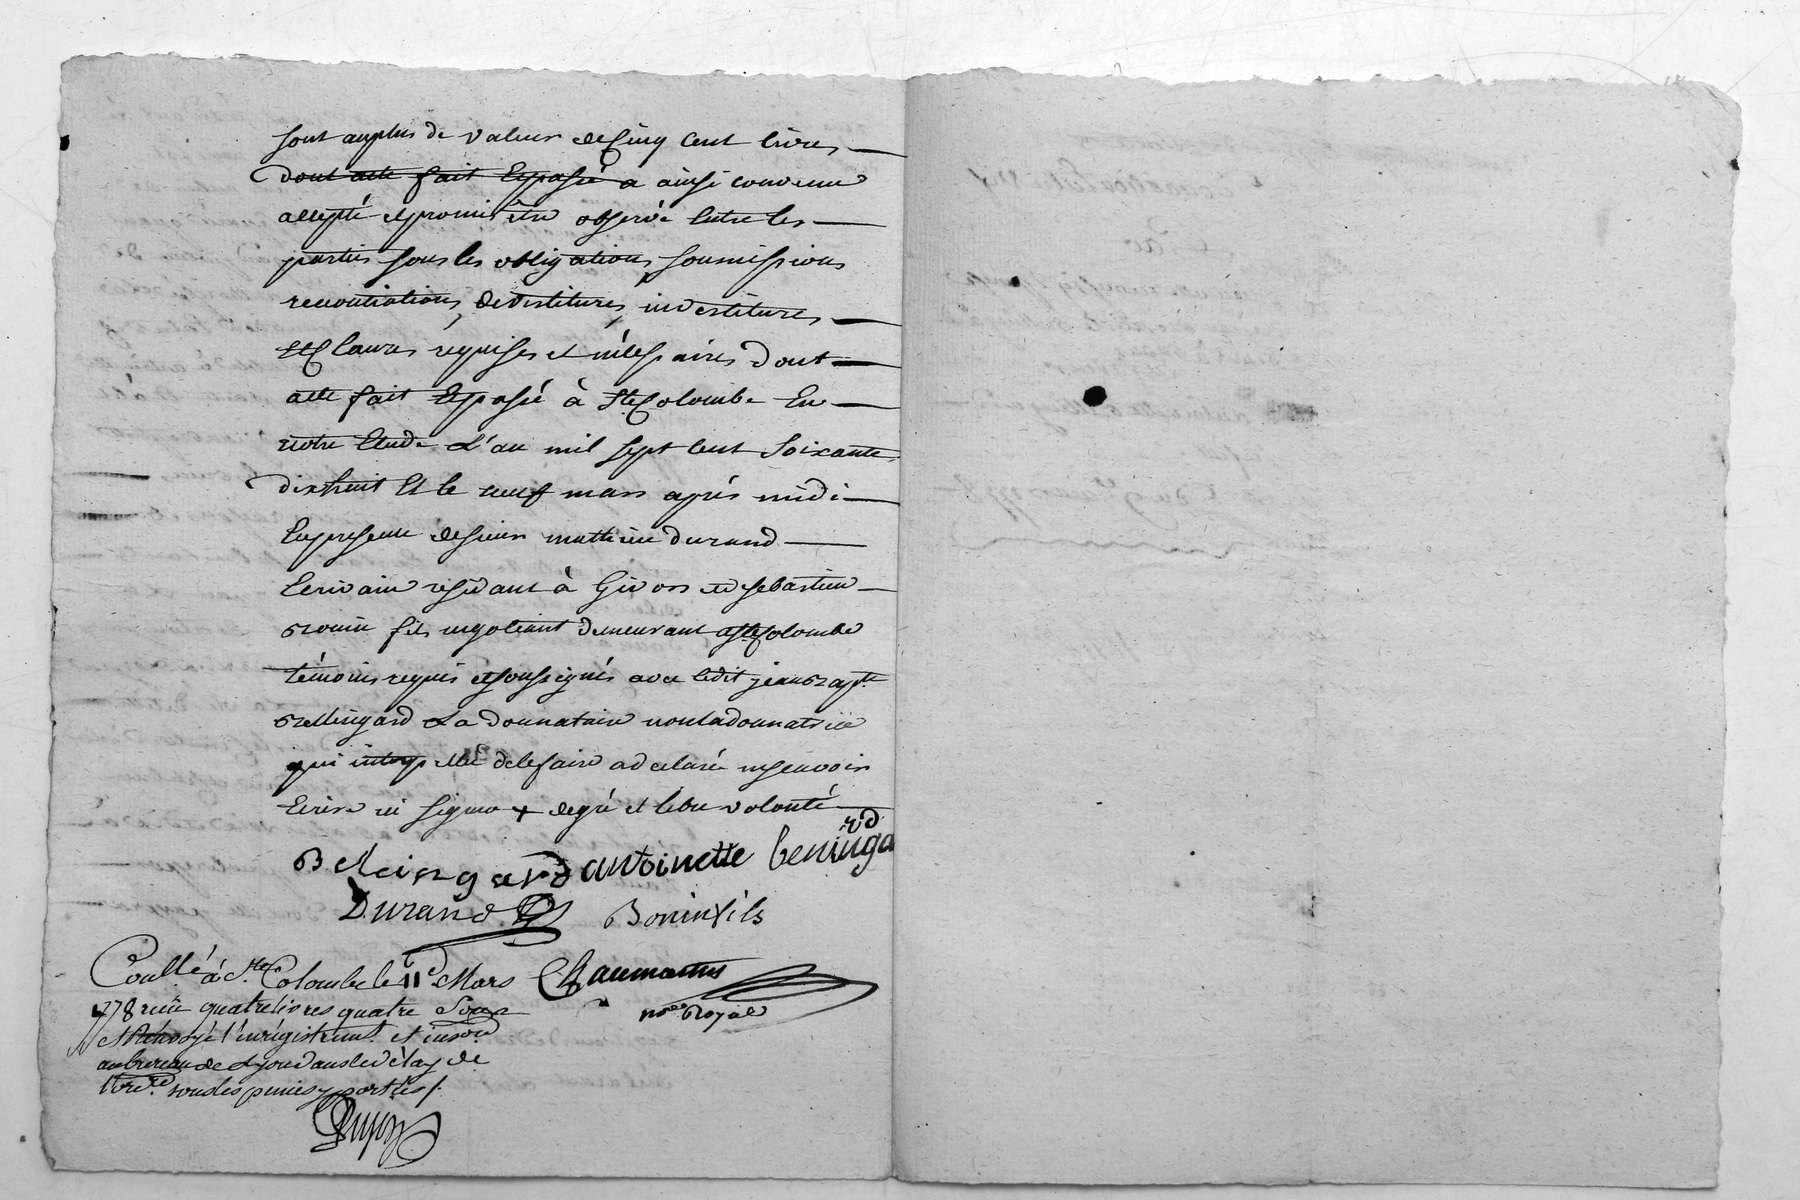 sont auplus de valeur de Cinq Cent livres
dont acte fait Expasié a ainsi convenu
accepté et promis être observé Entre les
parties sous les obligations, soumissions
renontiations, devestitures, investitures,
et Clauses requises et nécessaires Dont
acte fait Expasié à Ste Colombe En
notre Etude L'an mil sept Cent Soixante
dixhuit Et le neuf mars après midi
En presence de sieur mathieu durand
Ecrivain residant à Givors et sebastien
Bonin fils negotiant demeurant a Ste Colombe
témoins requis et soussignés avec ledit jean Bapte.
Bellingard & La donnataire non la donnatrice
qui interpellée de le faire a declaré ne sçavoir
Ecrire ni signer + de gré et libre volonté
Belleingard antoinette beningard
Durand Bonin fils
Coullé à Ste Colombe le 11e Mars Chaumartin
1778 reçu quatre livres quatre Sous nore Royal
et Renvoyé l'enregistremt. et insion
au bureau de Lyon dans le délay de
sous les peines y portées /.